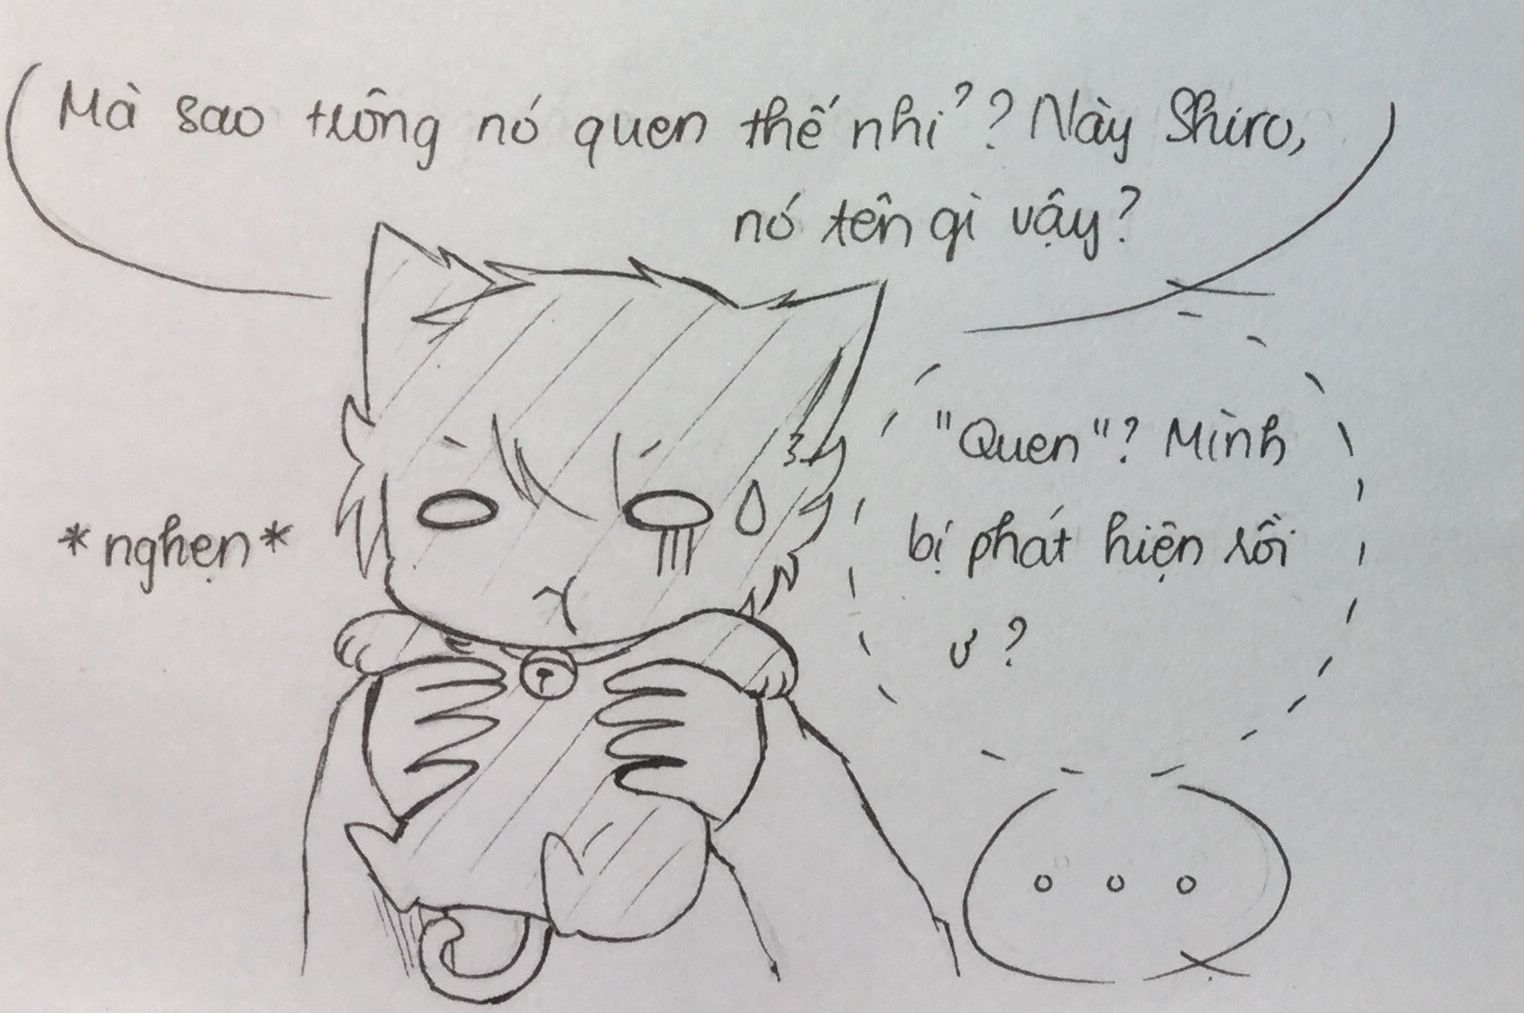 Mà sao tuông nó quen thế nhỉ? Này Shiro,
nó tên gì vậy?
*nghẹn*
"Quen"? Mình
bị phát hiện rồi
ư?